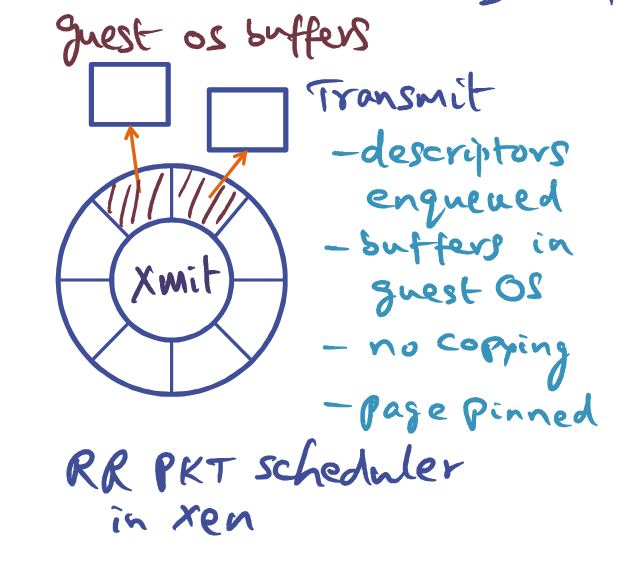 guest os buffers
Transmit
- descriptors
enqueued
- buffers in
guest OS
- no copying
- page pinned
Xmit
RR PKT scheduler
in Xen